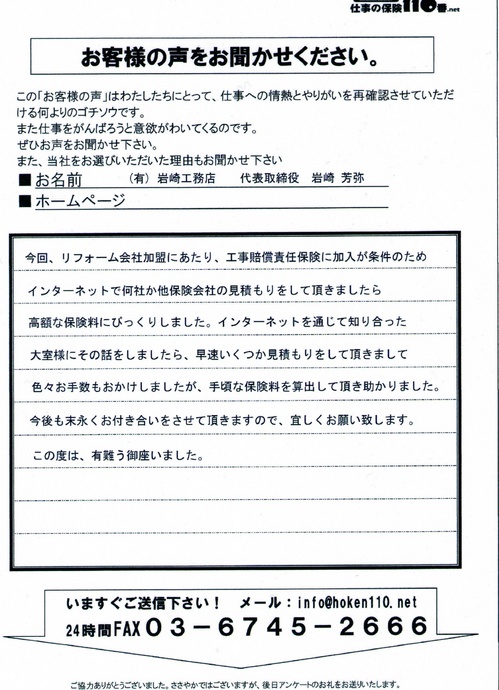 仕事の保険110番.net
お客様の声をお聞かせください。
この「お客様の声」はわたしたちにとって、仕事への情熱とやりがいを再確認させていただ
ける何よりのゴチソウです。
また仕事をがんばろうと意欲がわいてくるのです。
ぜひお声をお聞かせ下さい。
また、当社をお選びいただいた理由もお聞かせ下さい
■お名前 （有）岩崎工務店 代表取締役 岩崎 芳弥
■ホームページ
今回、リフォーム会社加盟にあたり、工事賠償責任保険に加入が条件のため
インターネットで何社か他保険会社の見積もりをして頂きましたら
高額な保険料にびっくりしました。インターネットを通じて知り合った
大室様にその話をしましたら、早速いくつか見積もりをして頂きまして
色々お手数もおかけしましたが、手頃な保険料を算出して頂き助かりました。
今後も末永くお付き合いをさせて頂きますので、宜しくお願い致します。
この度は、有難う御座いました。
いますぐご送信下さい！ メール：info@hoken110.net
24時間FAX０３－６７４５－２６６６
ご協力ありがとうございました。ささやかではございますが、後日アンケートのお礼をお送りいたします。